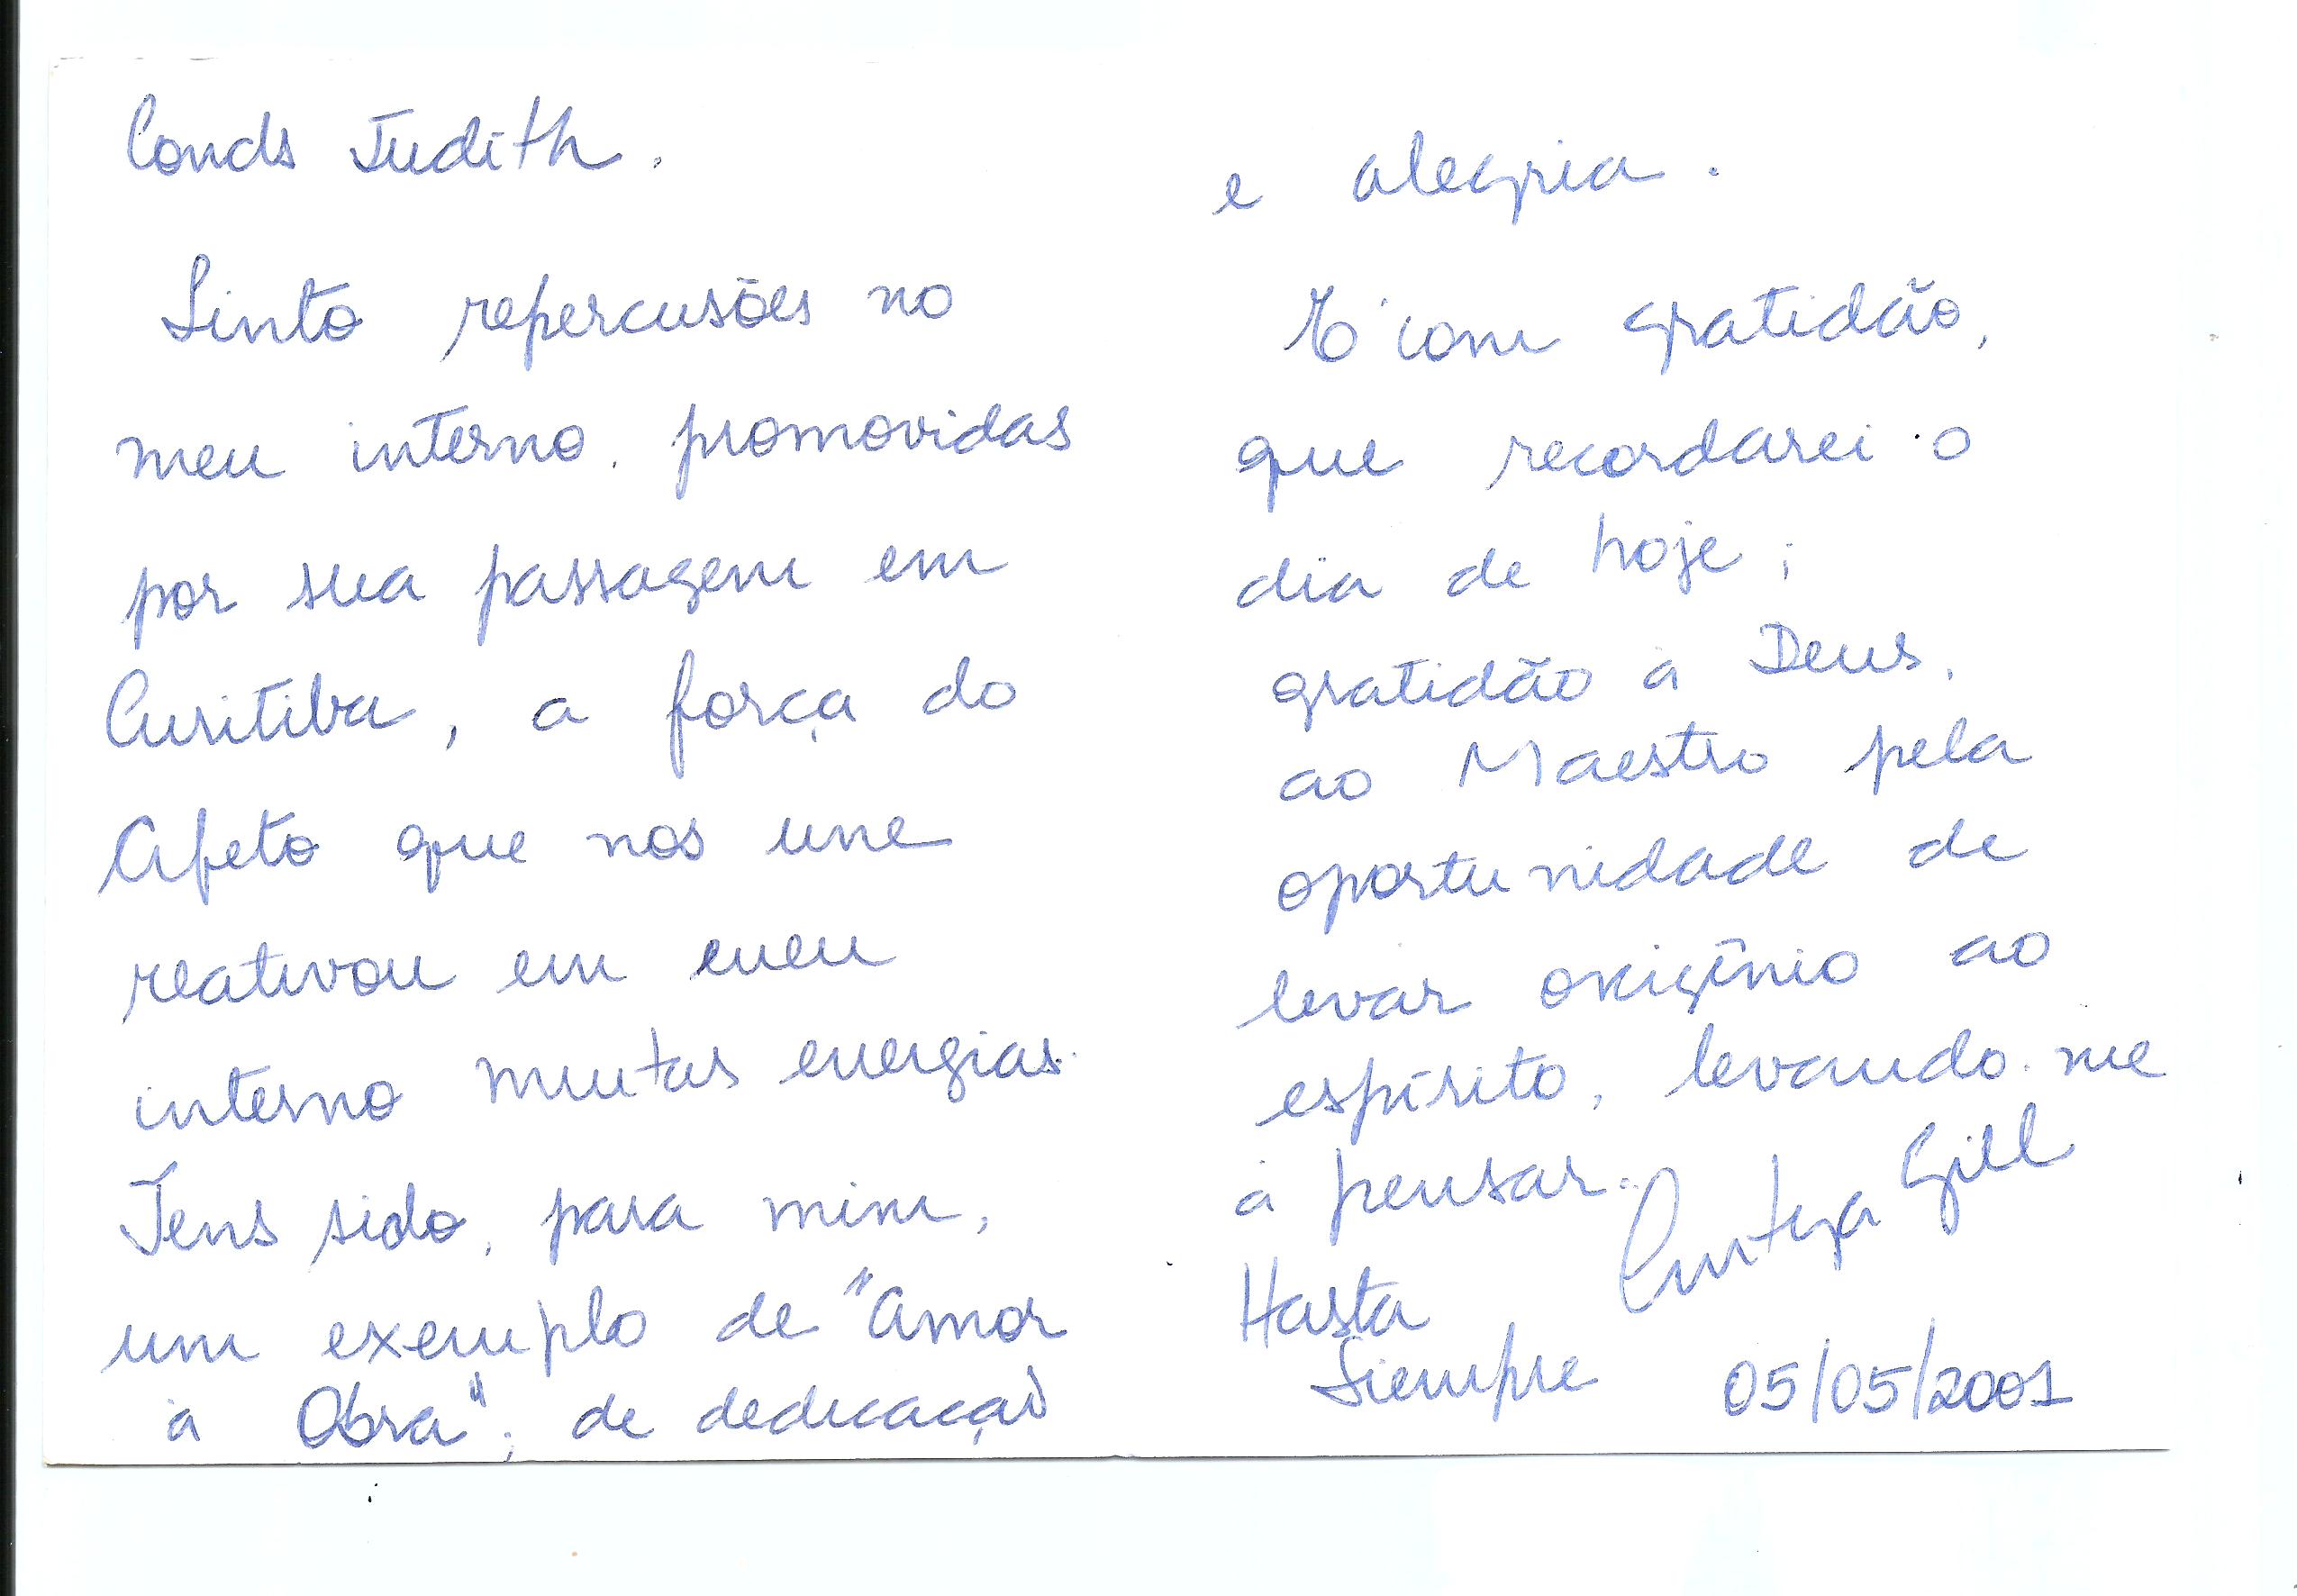 Conds Judith.
Sinto repercusões no
meu interno, promovidas
por sua passagem em
Curitiba, a força do
Afeto que nos une
reativou em meu
interno muitas energias.
Tens sido, para mim,
um exemplo de "Amor
à Obra"; de dedicação
e alegria.
É com gratidão,
que recordarei o
dia de hoje;
gratidão à Deus,
ao Maestro pela
oportunidade de
levar oxigênio ao
espírito, levando-me
à pensar.
Gill
Hasta
Siempre
05/05/2001